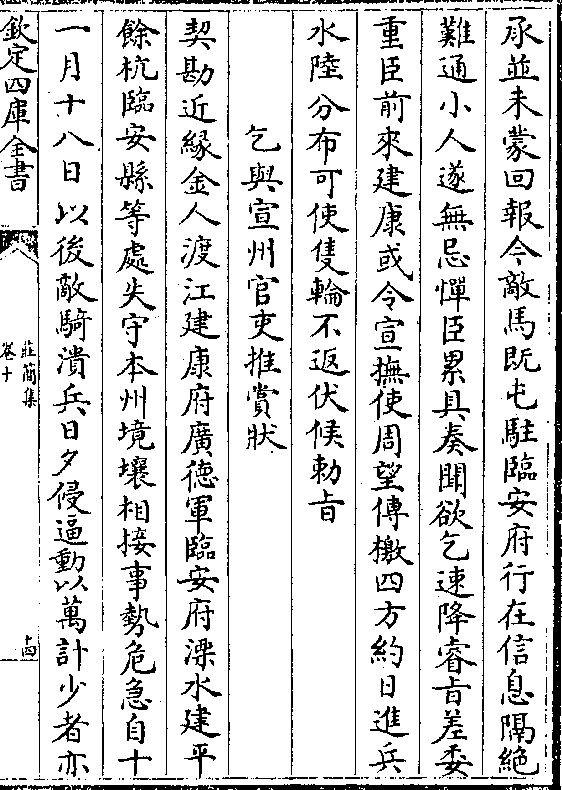 承並未蒙回報今敵馬既屯駐臨安府行在信息隔絶
難通小人遂無忌憚臣累具奏聞欲乞速降睿旨差委
重臣前來建康或令宣撫使周望傳檄四方約日進兵
水陸分布可使隻輪不返伏候勅旨
乞與宣州官吏推賞狀
契勘近緣金人渡江建康府廣德軍臨安府溧水建平
餘杭臨安縣等處失守本州境壤相接事勢危急自十
一月十八日以後敵騎潰兵日夕侵逼動以萬計少者亦
欽定四庫全書
莊簡集
卷十
十四